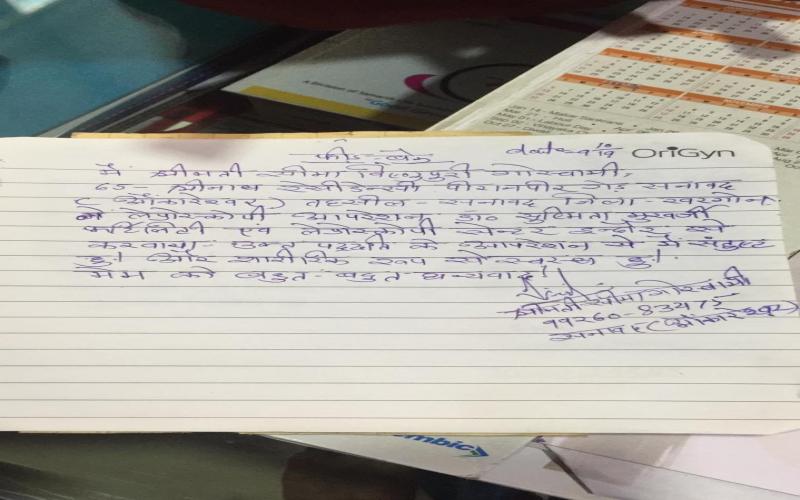 फीड-बेक
date=9 10/19 OriGyn
में श्रीमती सीमा विष्णुपुरी गोस्वामी,
65- श्रीनाथ रेसीडेन्सी पीरानपीर रोड सनावद
(ओंकारेश्वर) तहसील- सनावद जिला- खरगोन
ने लेप्रोस्कोपी आपरेशन डा० सुष्मिता मुखर्जी
फर्टिलिटी एवं लेप्रोस्कोपी सेन्टर इन्दौर से
करवाया- उक्त पद्धति के आपरेशन से में संतुष्ट
हु! और शारीरिक रूप से स्वस्थ हु!
मेम को बहुत-बहुत धन्यवाद!
श्रीमती सीमा गोस्वामी
99260-83475
सनावद (ओंकारेश्वर)